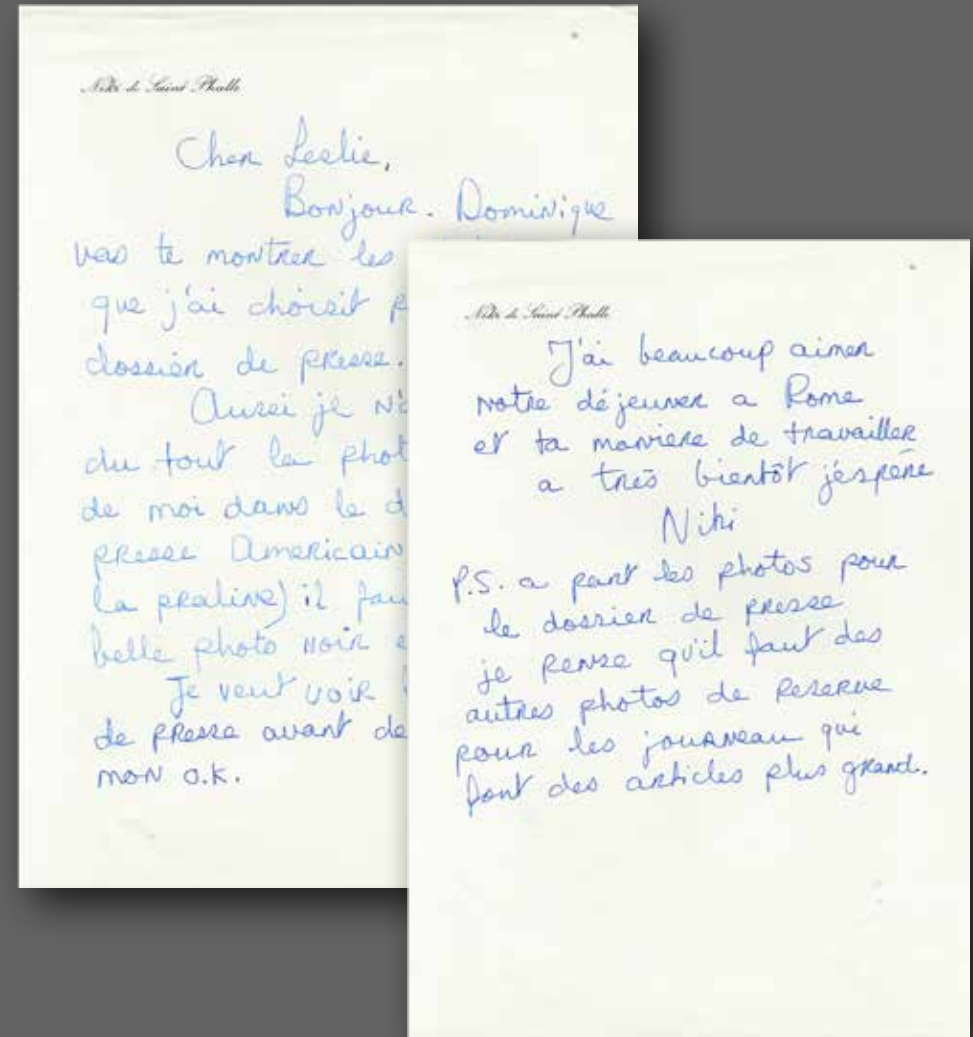 Niki de Saint Phalle
Cher Leslie,
Bonjour. Dominique
vas te montrer les
que j'ai choisit
dossier de presse.
Aussi je
du tout la
de moi dans le
presse Americain
la praline) il
belle photo noir
Je veut voir
de presse avant de
mon o.k.
Niki de Saint Phalle
J'ai beaucoup aimer
notre déjeuner a Rome
et ta maniere de travailler
a très bientôt j'éspère
Niki
P.S. a part les photos pour
le dossier de presse
je pense qu'il faut des
autres photos de reserve
pour les journeau qui
font des articles plus grand.